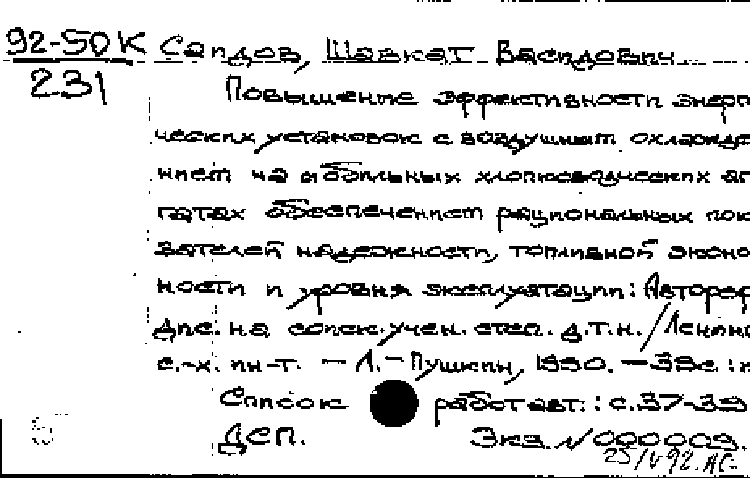 92-50К Саидов, Шавкат Васидович
231
Повышение эффективности энерг
ческих установок с воздушным охлажде
нием на мобильных хлопководческих аг
гатах обеспечением рациональных пок
зателей надежности, топливной эконо
ности и уровня эксплуатации: Автореф
дис. на соиск. учен. степ. д.т.н. / Ленинг
с.-х. ин-т. — Л.— Пушкин, 1990. — 39с.: и
Список работ авт.: с.37-39
ДСП. Экз. N 000009.
25/V 92. АС-